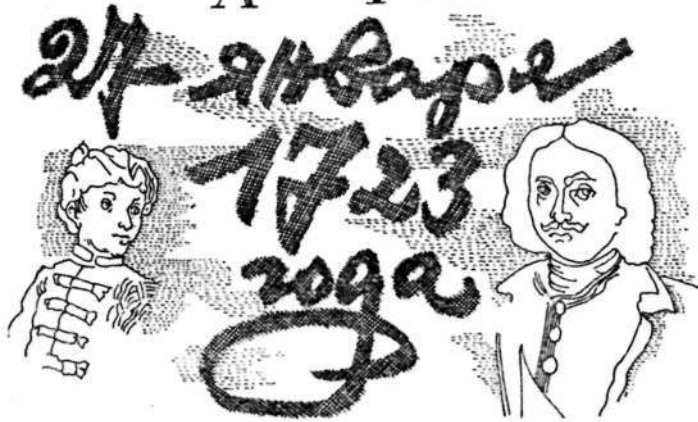 27 января
1723
года